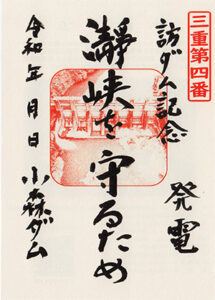 三重第四番
訪ダム記念
発電
瀞峡を守るため
令和 年 月 日
小森ダム